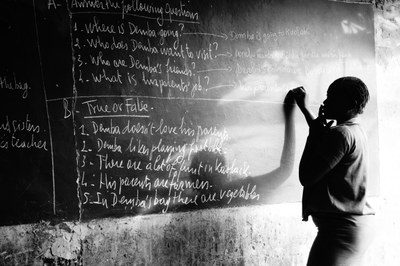 A. Answer the following Questions
1. Where is Demba going? → Demba is going to Kaolack
2. Who does Demba want to visit?
3. Who are Demba's friends
4. What is his parents' job?
the bag.
B. True or false.
sisters
teacher
1. Demba doesn't love his parents
2. Demba likes playing football
3. There are a lot of fruit in Kaolack
4. His parents are farmers.
5. In Demba's bag there are vegetables